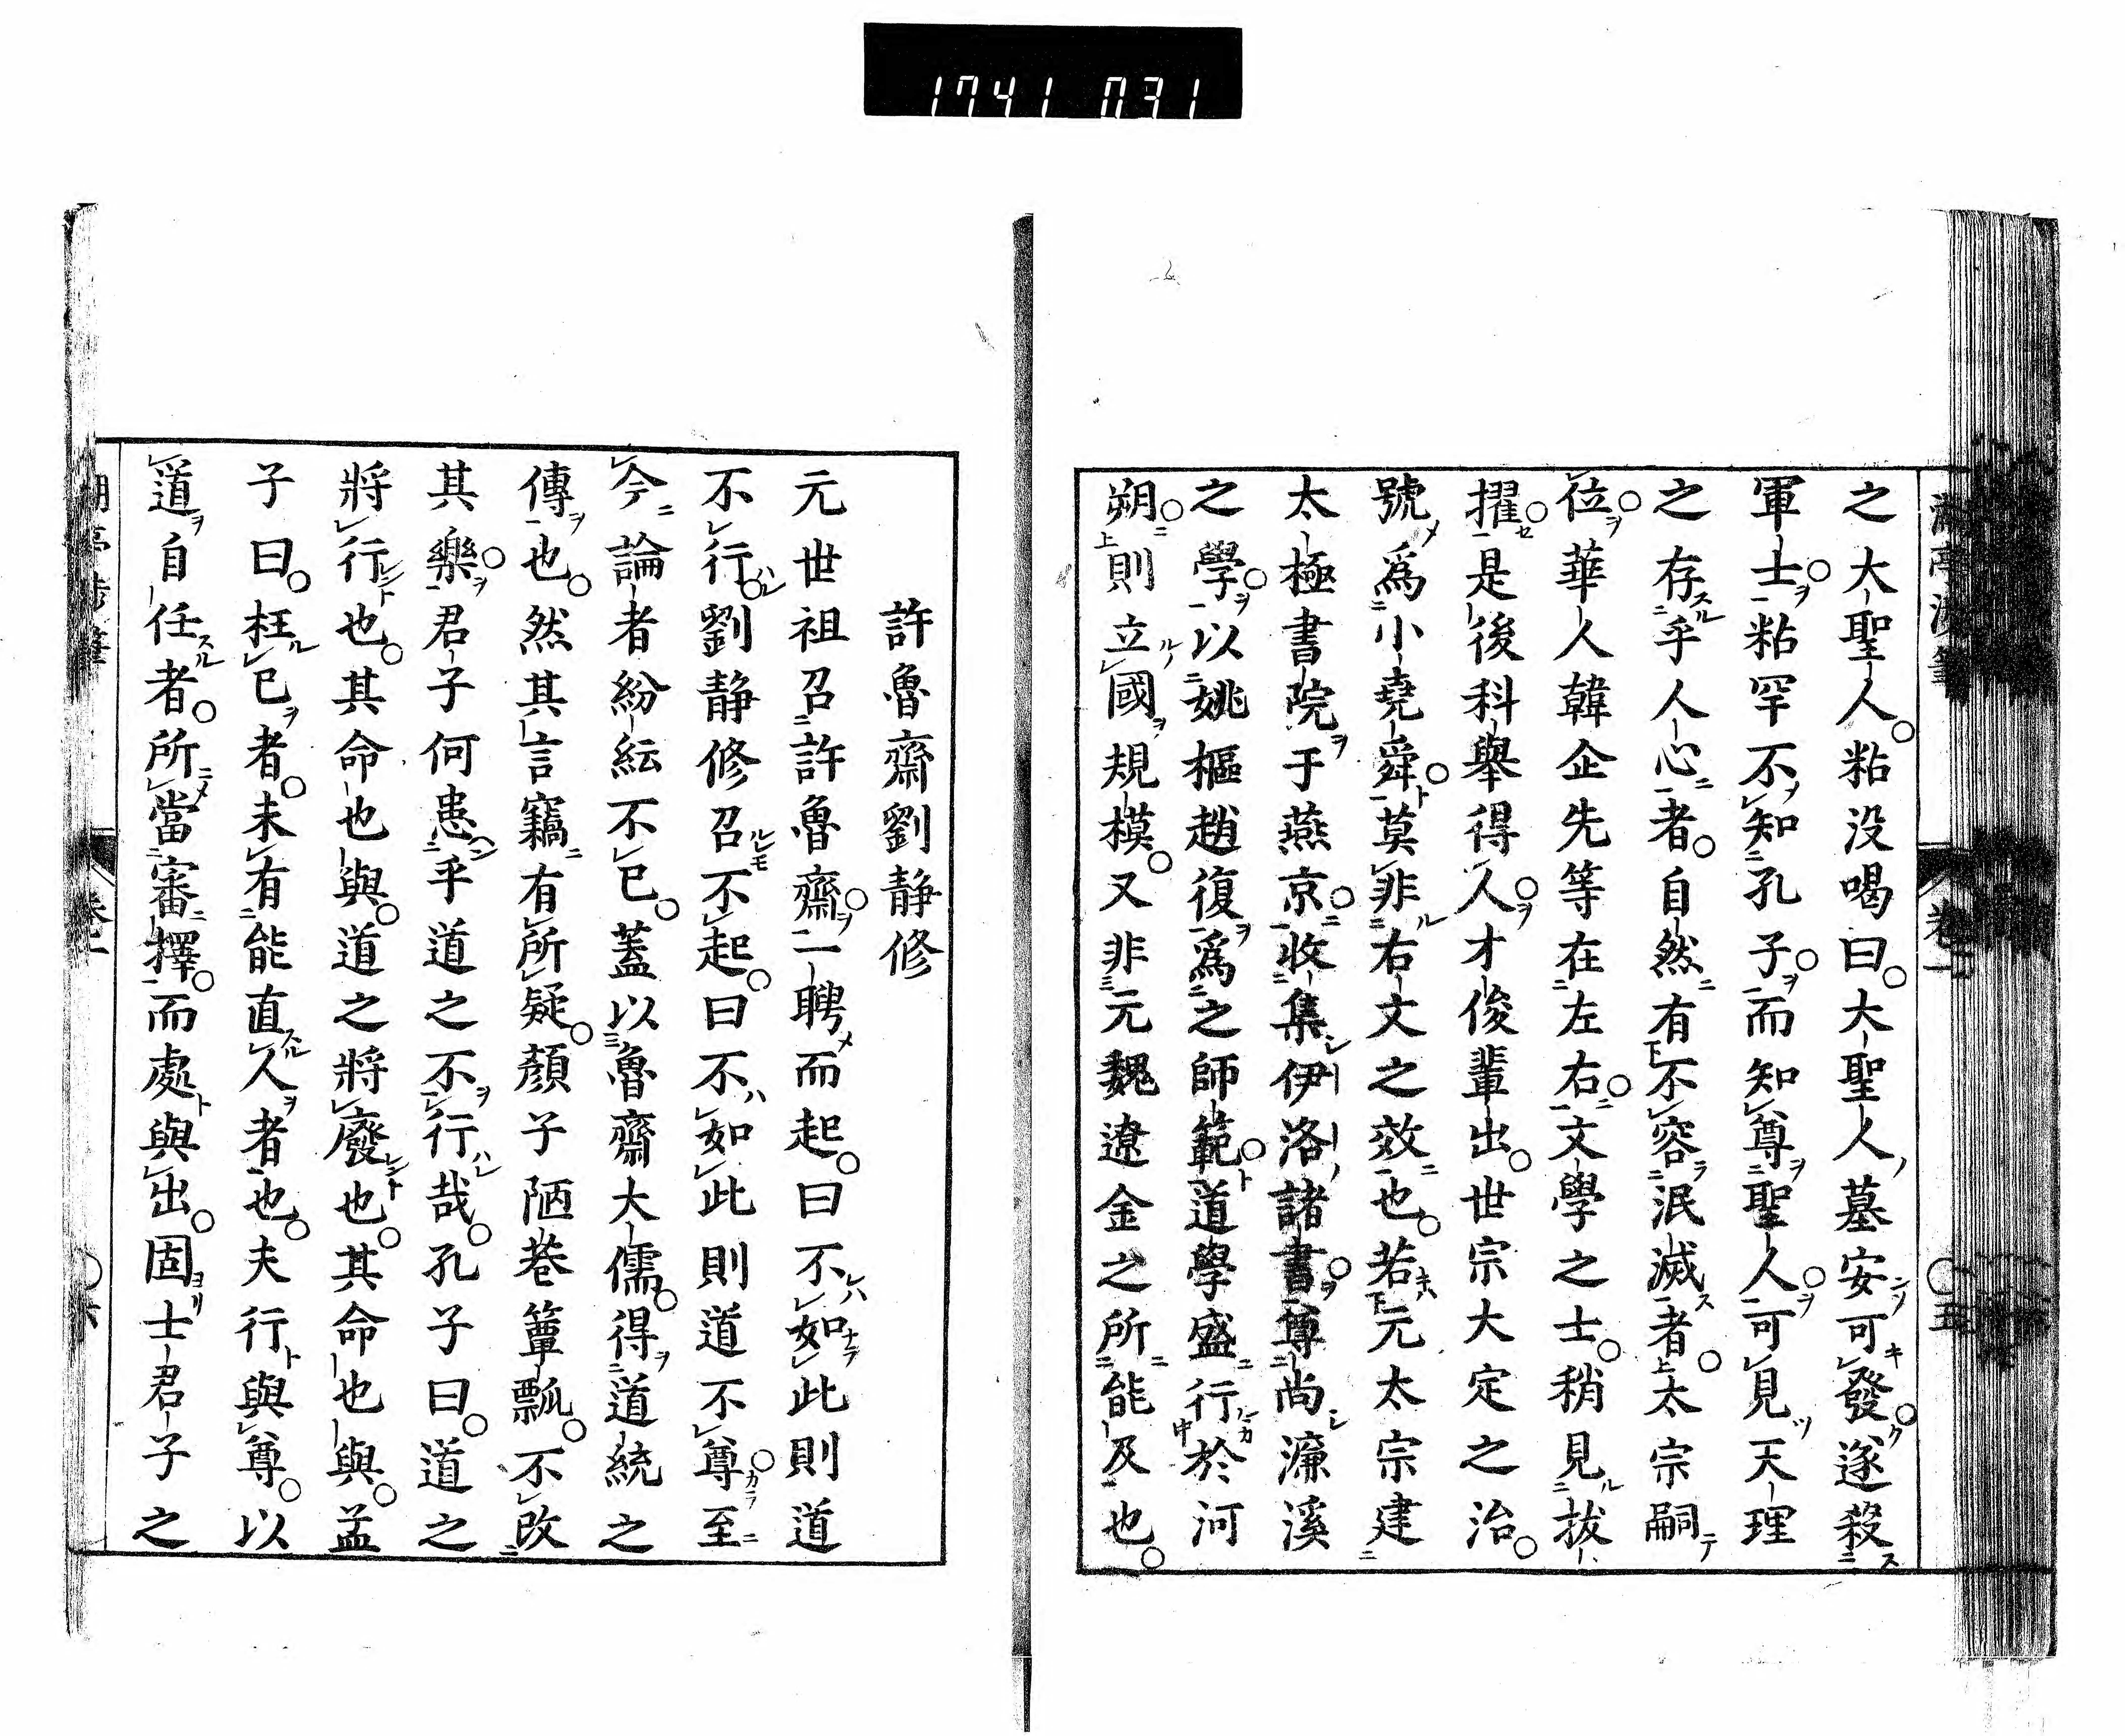 1741 031
之大聖人粘没喝曰大聖人墓安可發遂殺
軍士粘罕不知孔子而知尊聖人可見天理
之存乎人心者自然有不容泯滅者太宗嗣
位華人韓企先等在左右文學之士稍見拔
擢是後科舉得人才俊輩出世宗大定之治
號爲小堯舜莫非右文之效也若元太宗建
太極書院于燕京收集伊洛諸書尊尚濂溪
之學以姚樞趙復爲之師範道學盛行於河
朔則立國規模又非元魏遼金之所能及也
許魯齋劉静修
元世祖召許魯齋一聘而起曰不如此則道
不行劉静修召不起曰不如此則道不尊至
今論者紛紜不已蓋以魯齋大儒得道統之
傳也然其言竊有所疑顔子陋巷簞瓢不改
其樂君子何患乎道之不行哉孔子曰道之
將行也其命也與道之將廢也其命也與孟
子曰枉已者未有能直人者也夫行與尊以
道自任者所當審擇而處與出固士君子之